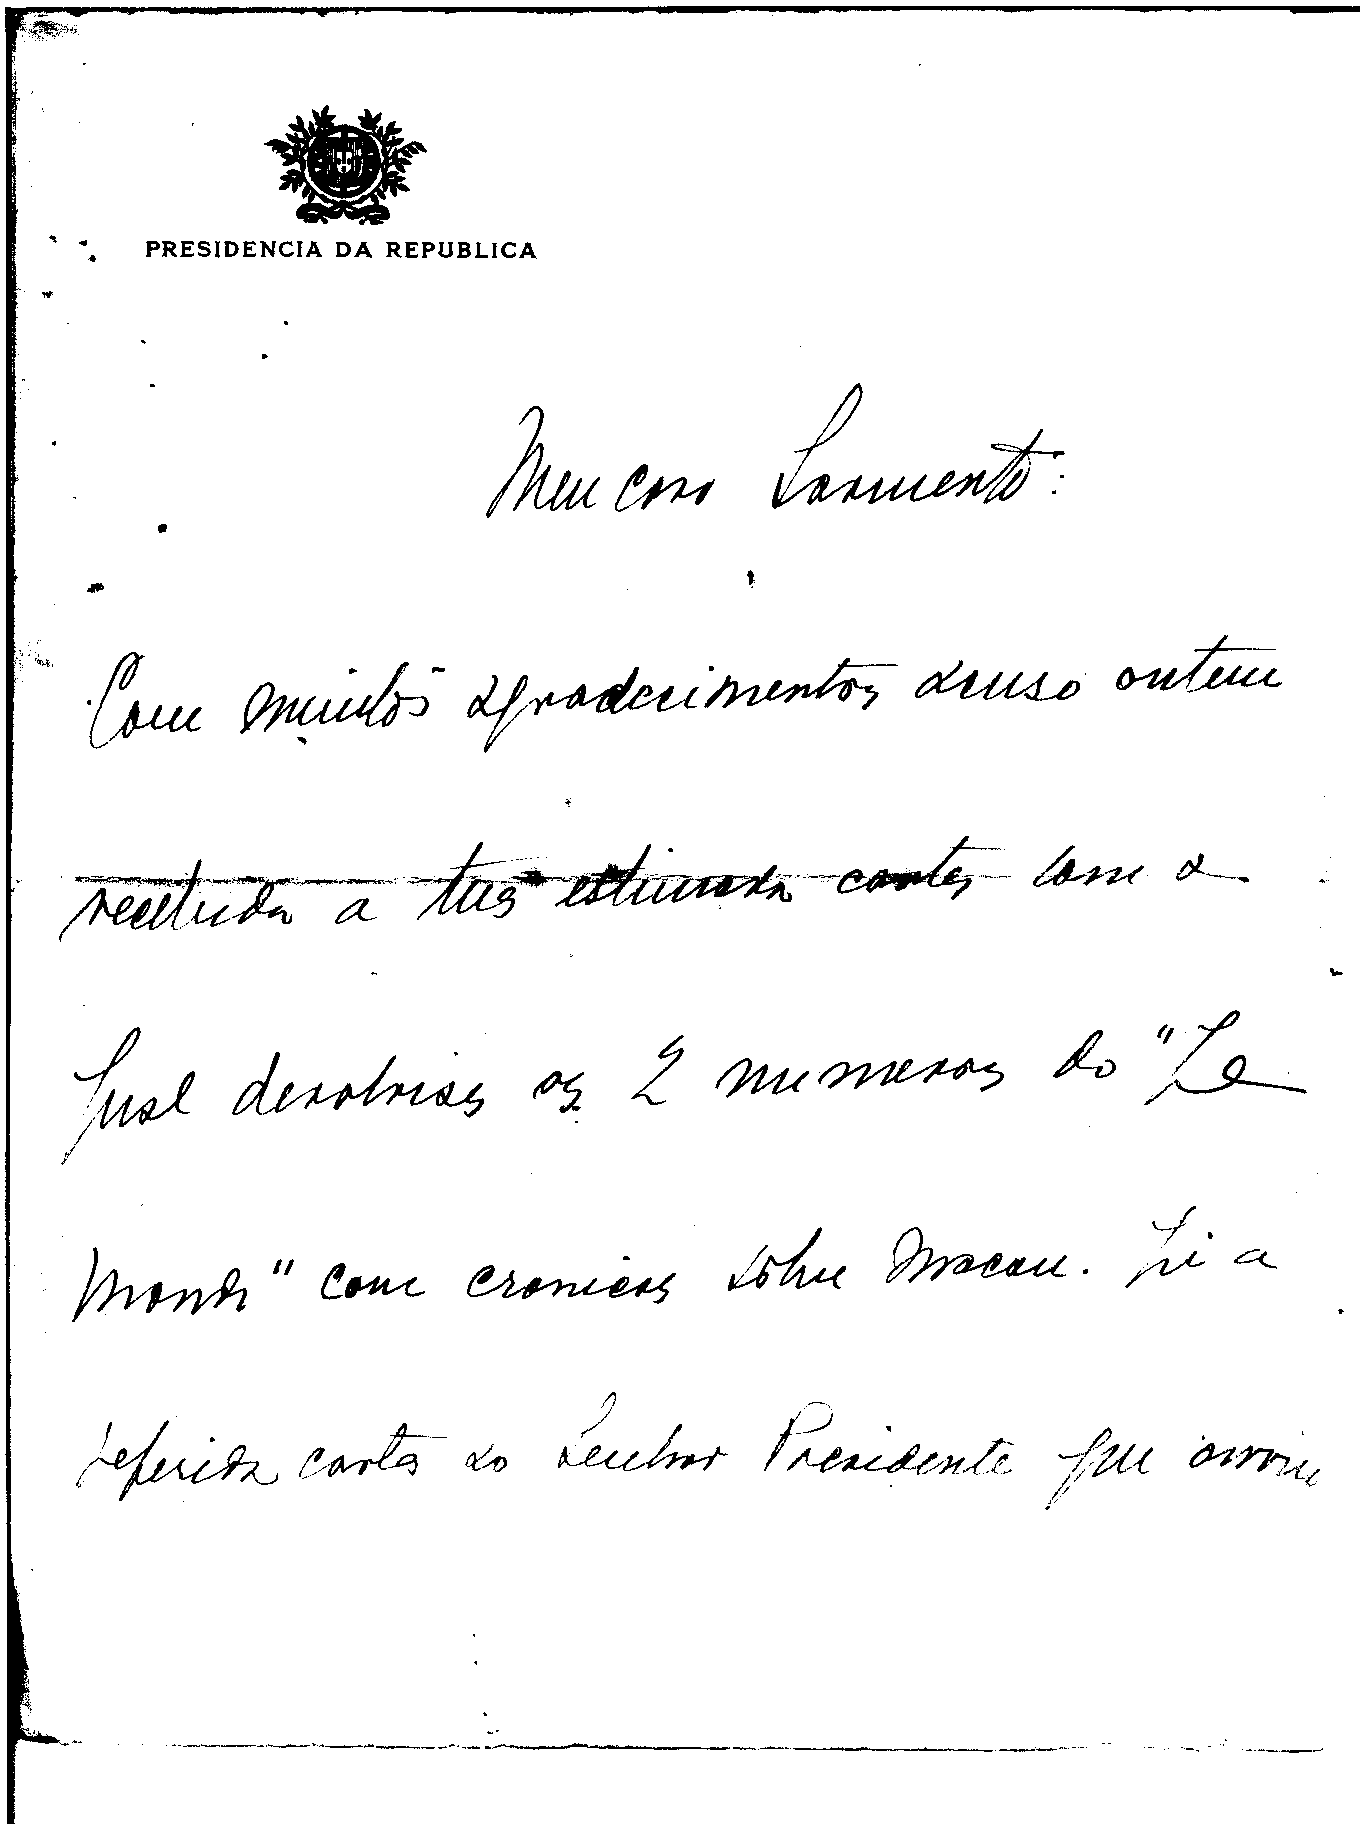 PRESIDENCIA DA REPUBLICA
Meu caro Sarmento:
Com muitos agradecimentos acuso ontem
recebida a tua estimada carta com a
qual devolvias os 2 numeros do "Le
Monde" com cronicas sobre Macau. Li a
referida carta ao Senhor Presidente que